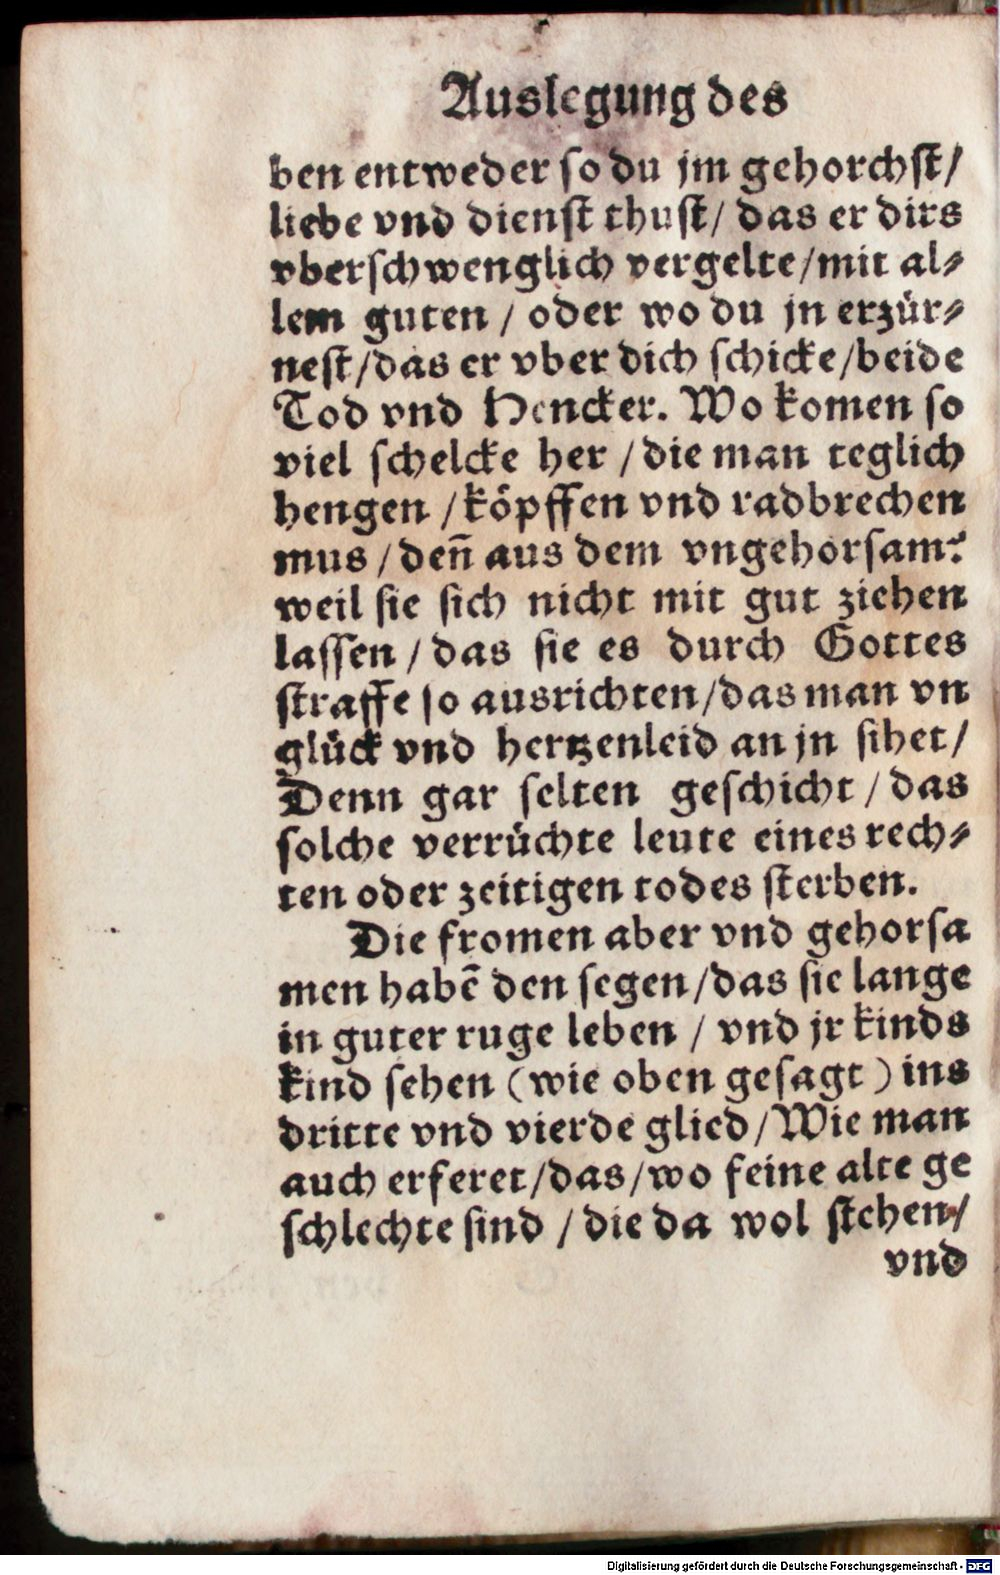 Auslegung des
ben entweder so du jm gehorchst/
liebe vnd dienst thust/ das er dirs
vberschwenglich vergelte/mit al⸗
lem guten / oder wo du jn erzür⸗
nest/das er vber dich schicke/beide
Tod vnd Hencker. Wo komen so
viel schelcke her /die man teglich
hengen /köpffen vnd radbrechen
mus / deñ aus dem vngehorsam?
weil sie sich nicht mit gut ziehen
lassen / das sie es durch Gottes
straffe so ausrichten/das man vn
glück vnd hertzenleid an jn sihet/
Denn gar selten geschicht / das
solche verrüchte leute eines rech⸗
ten oder zeitigen todes sterben.
Die fromen aber vnd gehorsa
men habē den segen/das sie lange
in guter ruge leben / vnd jr kinds
kind sehen (wie oben gesagt) ins
dritte vnd vierde glied/Wie man
auch erferet/das/wo feine alte ge
schlechte sind / die da wol stehen/
vnd
Digitalisierung gefördert durch die Deutsche Forschungsgemeinschaft - DFG